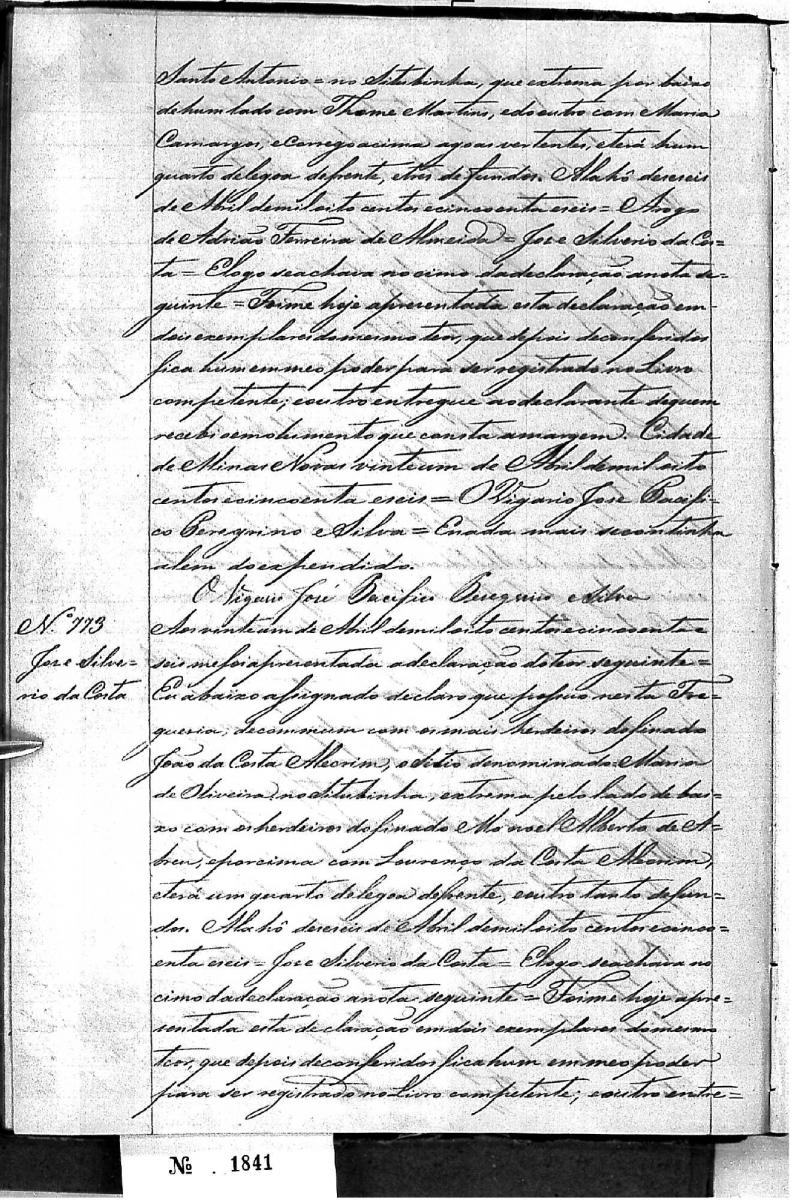 Santo Antonio = no Setubinha, que extrema por baixo
de hum lado com Thome Martins, e do outro com Maria
Camargos, e Corrego acima agoas vertentes, e terá hum
quarto de legoa de frente, e tres de fundos. Alahô deseseis
de Abril de mil oito centos e cincoenta e seis = Arogo
de Adrião Ferreira de Almeida = Jose Silverio da Cos-
ta = E logo se achava no cimo da declaração a nota se-
guinte = Foi me hoje apresentada esta declaração em
dois exemplares do mesmo teor, que depois de conferidos
fica hum em meo poder para ser registrado no Livro
competente; e outro entregue ao declarante de quem
recebi o emolumento que consta a margem. Cidade
de Minas Novas vinte um de Abril de mil oito
centos e cincoenta e seis = O Vigario Jose Pacifi-
co Peregrino e Silva = E nada mais se continha
alem do expendido.
O Vigario José Pacifico Peregrino e Silva
N.º 773
Jose Silve=
rio da Costa
Aos vinte um de Abril de mil oito centos e cincoenta e
seis me foi apresentada a declaração do teor seguinte =
Eu abaixo assignado declaro que possuo nesta Fre-
guesia, de commum com os mais herdeiros do finado
João da Costa Alecrim, o sitio denominado = Maria
de Oliveira, no Setubinha, extrema pelo lado de bai-
xo com os herdeiros do finado Manoel Alberto de A-
breu, e por cima com Lourenço da Costa Alecrim,
e terá um quarto de legoa de frente, e outro tanto de fun-
dos. Alahô deseseis de Abril de mil oito centos e cinco=
enta e seis = Jose Silverio da Costa = E logo se achava no
cimo da declaração a nota seguinte = Foi me hoje apre=
sentada esta declaração em dois exemplares do mesmo
teor, que depois de conferidos fica hum em meo poder
para ser registrado no Livro competente; e outro entre=
№ . 1841